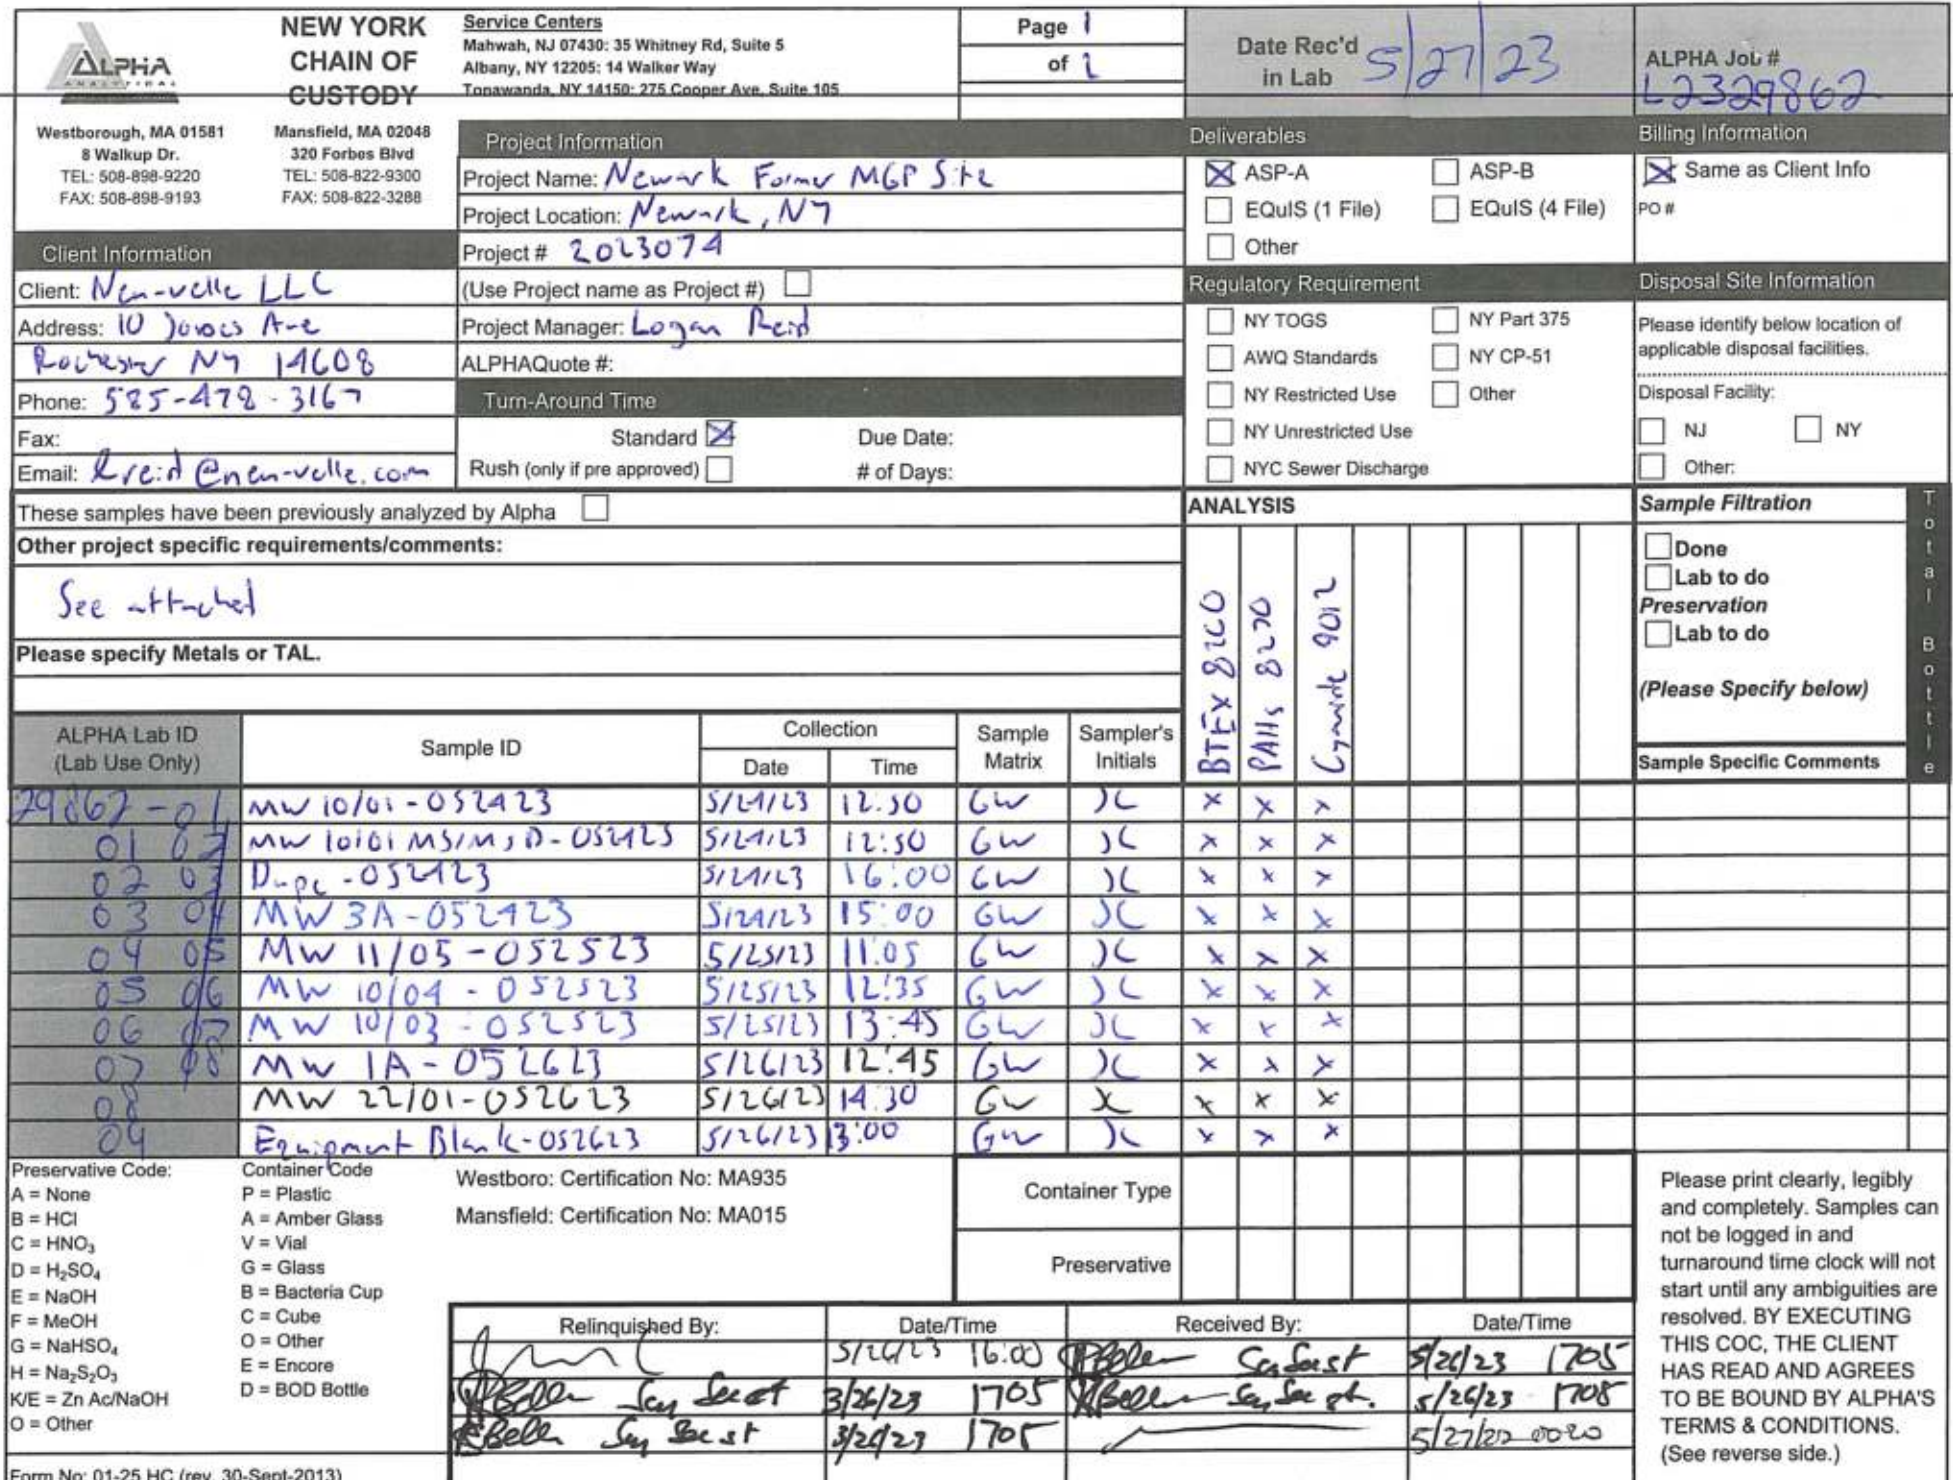 ALPHA
ANALYTICAL
NEW YORK
CHAIN OF
CUSTODY
Service Centers
Mahwah, NJ 07430: 35 Whitney Rd, Suite 5
Albany, NY 12205: 14 Walker Way
Tonawanda, NY 14150: 275 Cooper Ave, Suite 105
Page 1
of 1
Date Rec'd
in Lab 5/27/23
ALPHA Job #
L2329862
Westborough, MA 01581
8 Walkup Dr.
TEL: 508-898-9220
FAX: 508-898-9193
Mansfield, MA 02048
320 Forbes Blvd
TEL: 508-822-9300
FAX: 508-822-3288
Project Information
Project Name: Newark Former MGP Site
Project Location: Newark, NY
Project # 2023074
(Use Project name as Project #)
Project Manager: Logan Reid
ALPHAQuote #:
Client Information
Client: Neu-velle LLC
Address: 10 Ave
Rochester NY 14608
Phone: 585-478-3167
Fax:
Email: lreid@neu-velle.com
Turn-Around Time
Standard X Due Date:
Rush (only if pre approved) # of Days:
Deliverables
X ASP-A ASP-B
EQuIS (1 File) EQuIS (4 File)
Other
Regulatory Requirement
NY TOGS NY Part 375
AWQ Standards NY CP-51
NY Restricted Use Other
NY Unrestricted Use
NYC Sewer Discharge
Billing Information
X Same as Client Info
PO #
Disposal Site Information
Please identify below location of
applicable disposal facilities.
Disposal Facility:
NJ NY
Other:
These samples have been previously analyzed by Alpha
Other project specific requirements/comments:
See attached
Please specify Metals or TAL.
ANALYSIS
BTEX 8260
PAHs 8270
Cyanide 9012
Sample Filtration
Done
Lab to do
Preservation
Lab to do
(Please Specify below)
Total Bottle
ALPHA Lab ID
(Lab Use Only)
Sample ID
Collection
Date Time
Sample
Matrix
Sampler's
Initials
Sample Specific Comments
29862-01 MW 10/01-052423 5/24/23 12:50 GW JC x x x
01 02 MW 10101 MS/MSD-052423 5/24/23 12:50 GW JC x x x
02 03 Dupe-052423 5/24/23 16:00 GW JC x x x
03 04 MW 3A-052423 5/24/23 15:00 GW JC x x x
04 05 MW 11/05-052523 5/25/23 11:05 GW JC x x x
05 06 MW 10/04-052523 5/25/23 12:35 GW JC x x x
06 07 MW 10/03-052523 5/25/23 13:45 GW JC x x x
07 08 MW 1A-052623 5/26/23 12:45 GW JC x x x
08 MW 22/01-052623 5/26/23 14:30 GW JC x x x
09 Equipment Blank-052623 5/26/23 13:00 GW JC x x x
Preservative Code:
A = None
B = HCl
C = HNO₃
D = H₂SO₄
E = NaOH
F = MeOH
G = NaHSO₄
H = Na₂S₂O₃
K/E = Zn Ac/NaOH
O = Other
Container Code
P = Plastic
A = Amber Glass
V = Vial
G = Glass
B = Bacteria Cup
C = Cube
O = Other
E = Encore
D = BOD Bottle
Westboro: Certification No: MA935
Mansfield: Certification No: MA015
Container Type
Preservative
Relinquished By: Date/Time Received By: Date/Time
5/26/23 16:00 5/26/23 1705
3/26/23 1705 5/26/23 1705
3/26/23 1705 5/27/23 0020
Please print clearly, legibly
and completely. Samples can
not be logged in and
turnaround time clock will not
start until any ambiguities are
resolved. BY EXECUTING
THIS COC, THE CLIENT
HAS READ AND AGREES
TO BE BOUND BY ALPHA'S
TERMS & CONDITIONS.
(See reverse side.)
Form No: 01-25 HC (rev. 30-Sept-2013)